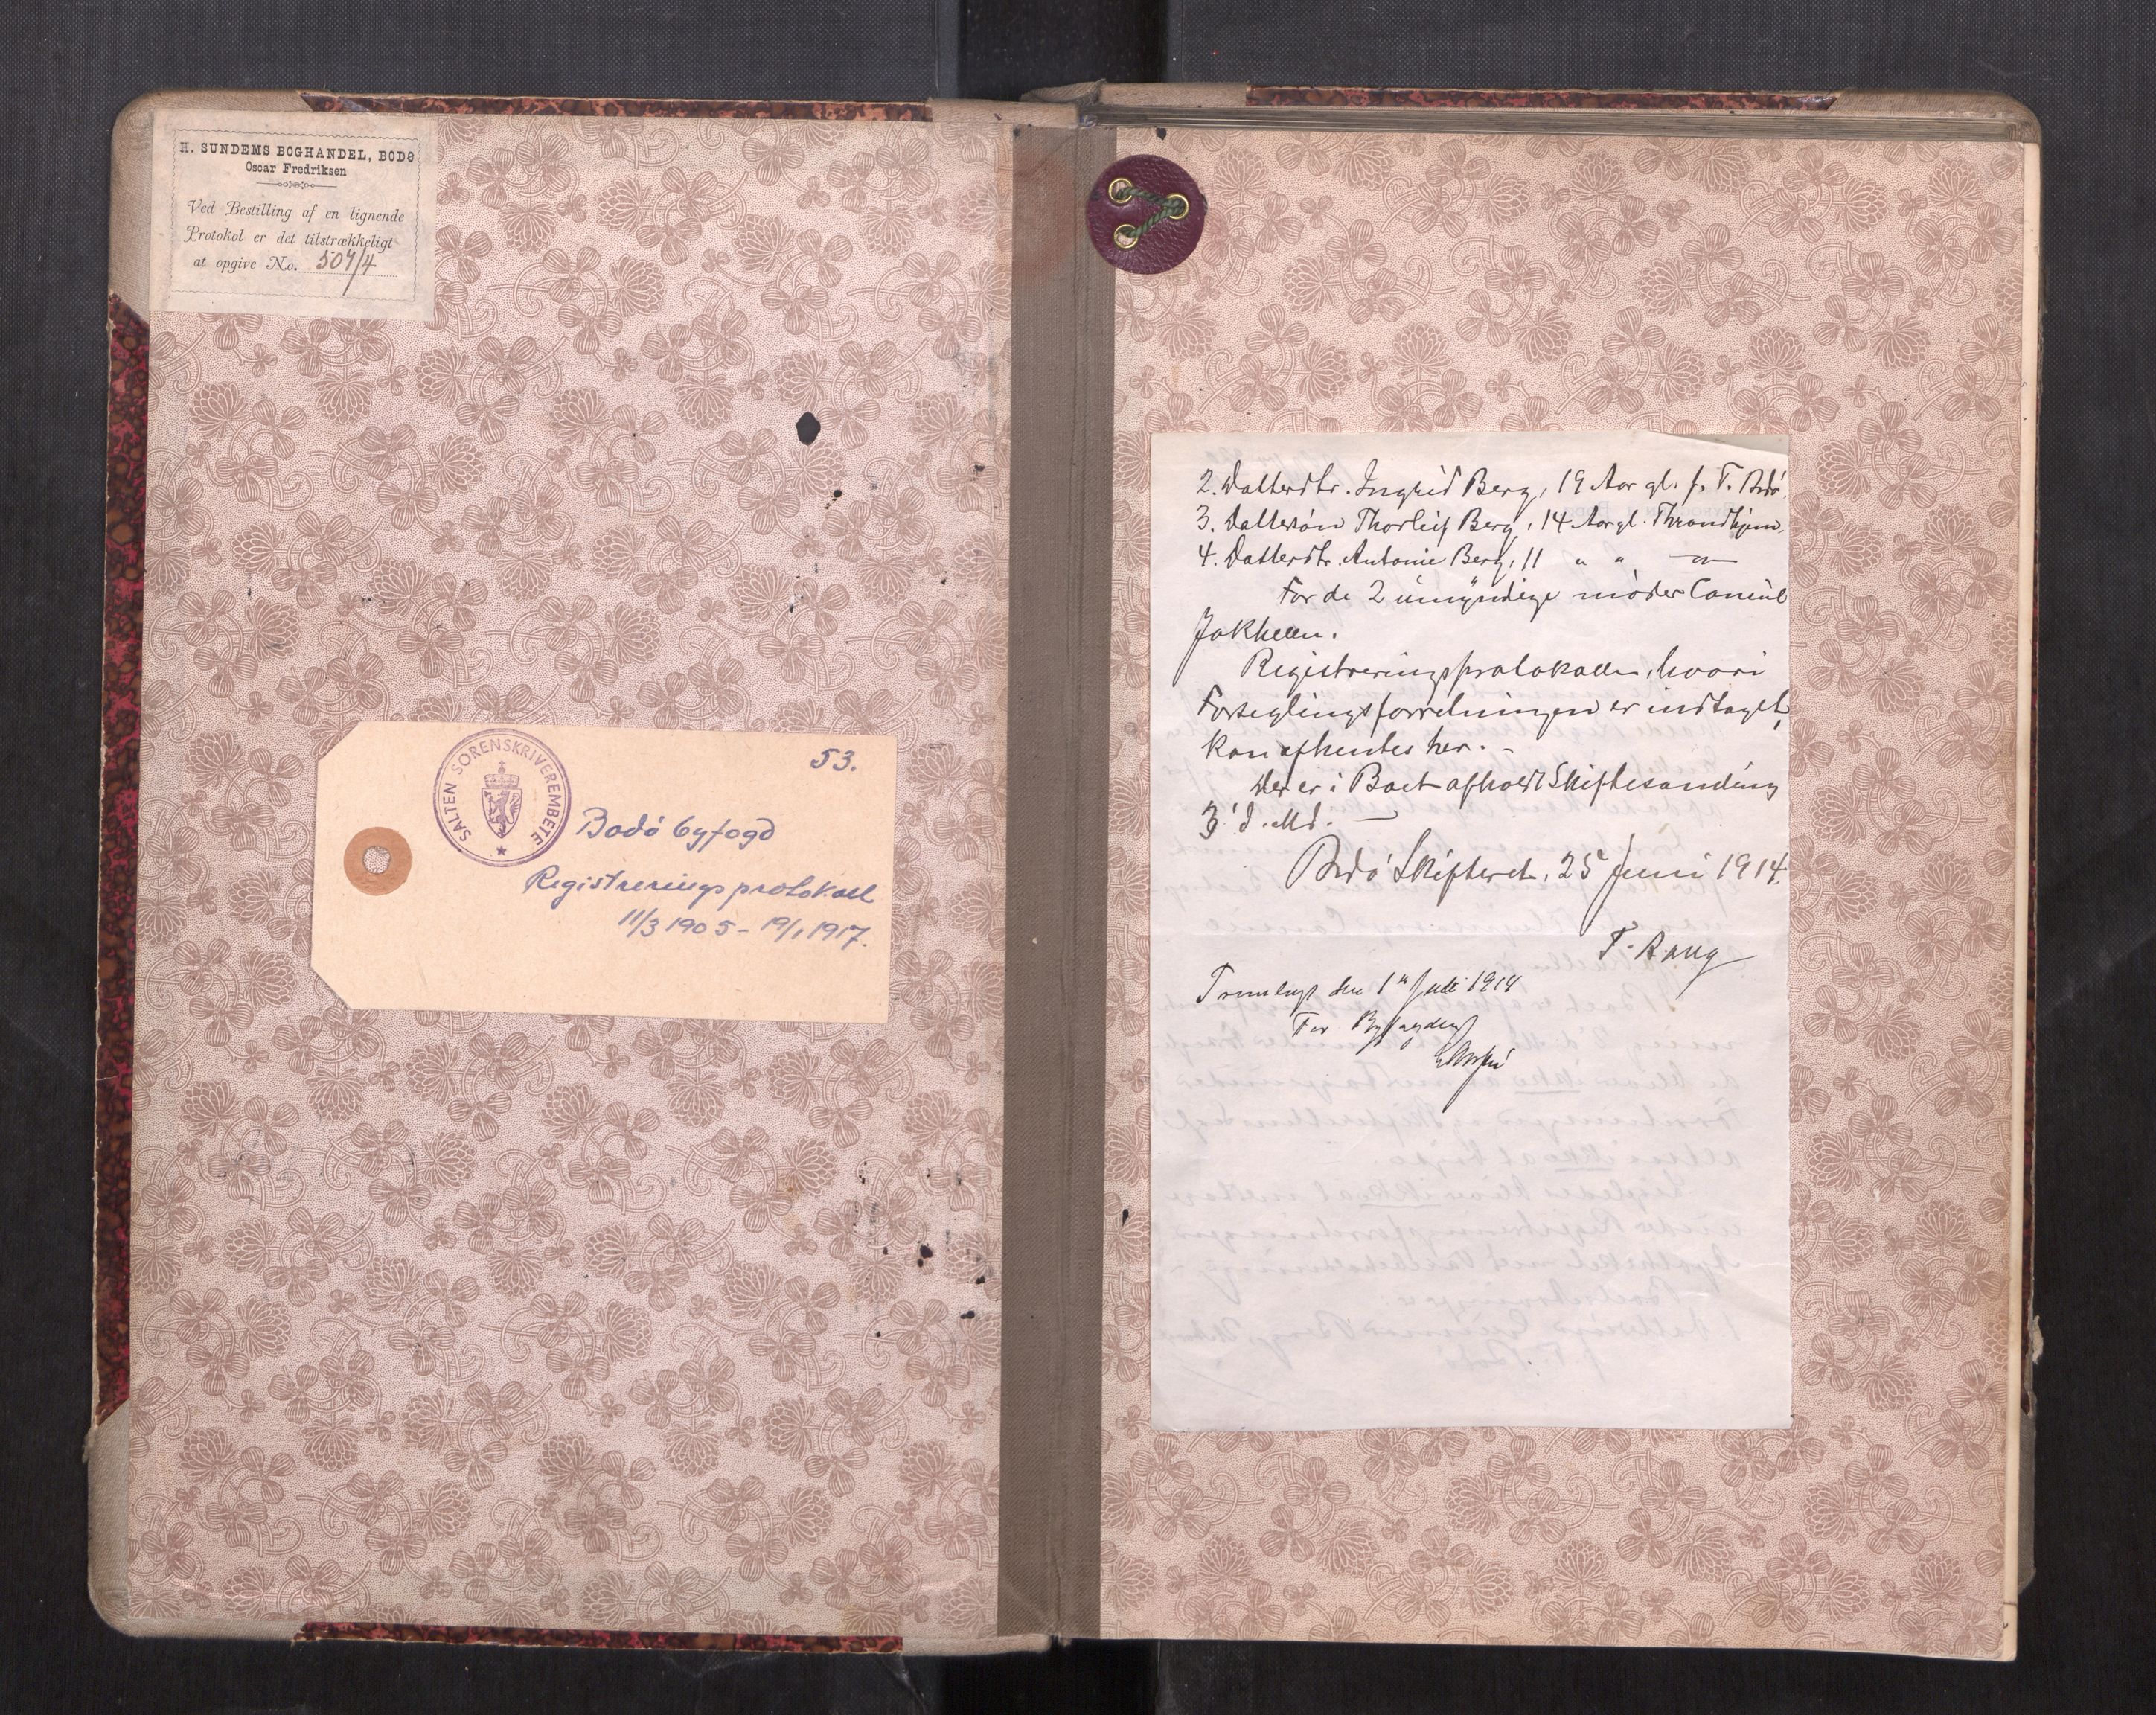 H. SUNDEMS BOGHANDEL, BODØ
Oscar Fredriksen
Ved Bestilling af en lignende
Protokol er det tilstrækkeligt
at opgive No. 507/4
SALTEN SORENSKRIVEREMBETE
53.
Bodö byfogd
Registreringsprotokoll
11/3 1905 - 19/1 1917.
2. Datterdtr. Ingrid Berg, 19 Aar gl. f. T. Bodö.
3. Dattersön Thorleif Berg, 14 Aar gl. Throndhjem,
4. Datterdtr. Antonie Berg, 11 " " —"—
For de 2 umyndige möder Consul
Jakhelln.
Registreringsprotokollen, hvori
Forseglingsforretningen er indtaget,
kan afhentes her. -
Der er i Boet afholdt Skiftesamling
3' d. Md. —
Bodö Skifteret, 25 Juni 1914.
T. Aung
Fremlagt den 1 Juli 1914
For Byfogden